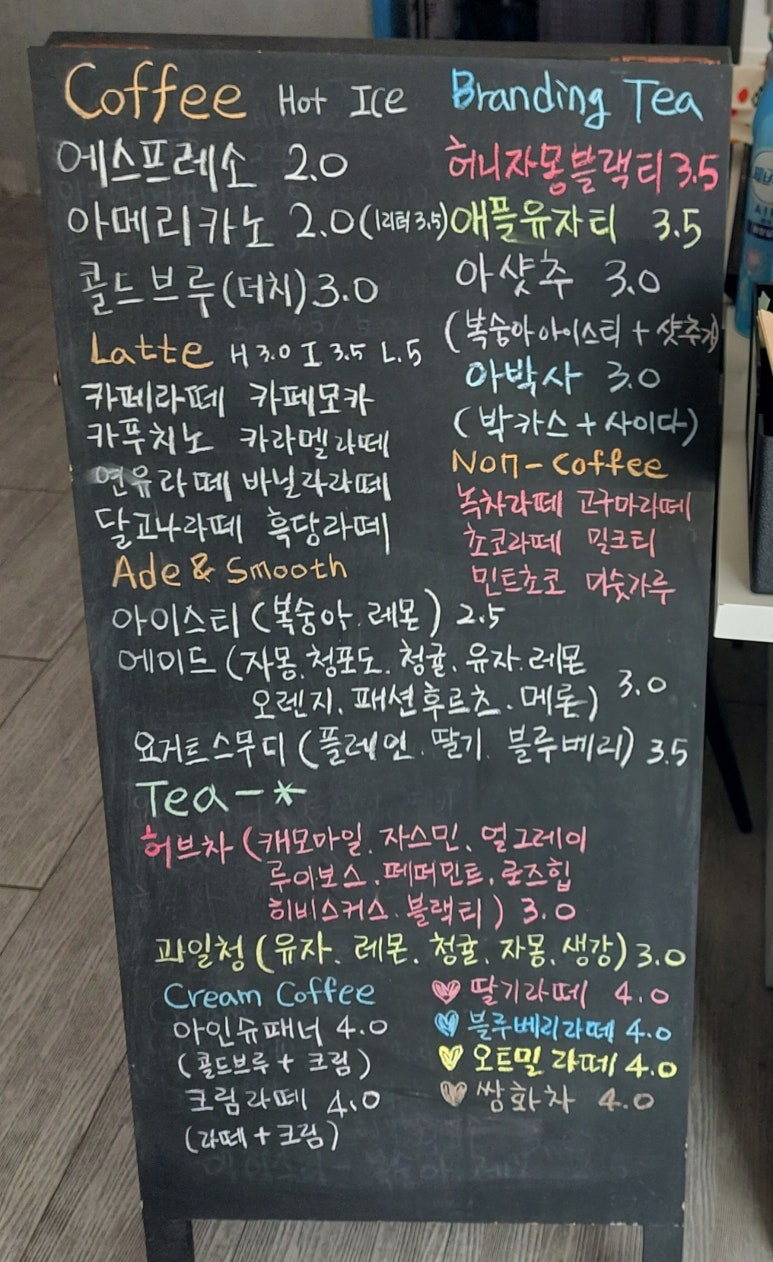 Coffee Hot Ice
에스프레소 2.0
아메리카노 2.0 (1리터 3.5)
콜드브루 (더치) 3.0
Latte H 3.0 I 3.5 L.5
카페라떼 카페모카
카푸치노 카라멜라떼
연유라떼 바닐라라떼
달고나라떼 흑당라떼
Branding Tea
허니자몽블랙티 3.5
애플유자티 3.5
아샷추 3.0
(복숭아아이스티 + 샷추가)
아박사 3.0
(박카스 + 사이다)
Non-Coffee
녹차라떼 고구마라떼
초코라떼 밀크티
민트초코 미숫가루
Ade & Smooth
아이스티 (복숭아. 레몬) 2.5
에이드 (자몽. 청포도. 청귤. 유자. 레몬
오렌지. 패션후르츠. 메론) 3.0
요거트스무디 (플레인. 딸기. 블루베리) 3.5
Tea-*
허브차 (캐모마일. 자스민. 얼그레이
루이보스. 페퍼민트. 로즈힙
히비스커스. 블랙티) 3.0
과일청 (유자. 레몬. 청귤. 자몽. 생강) 3.0
Cream Coffee
아인슈패너 4.0
(콜드브루 + 크림)
크림라떼 4.0
(라떼 + 크림)
딸기라떼 4.0
블루베리라떼 4.0
오트밀 라떼 4.0
쌍화차 4.0